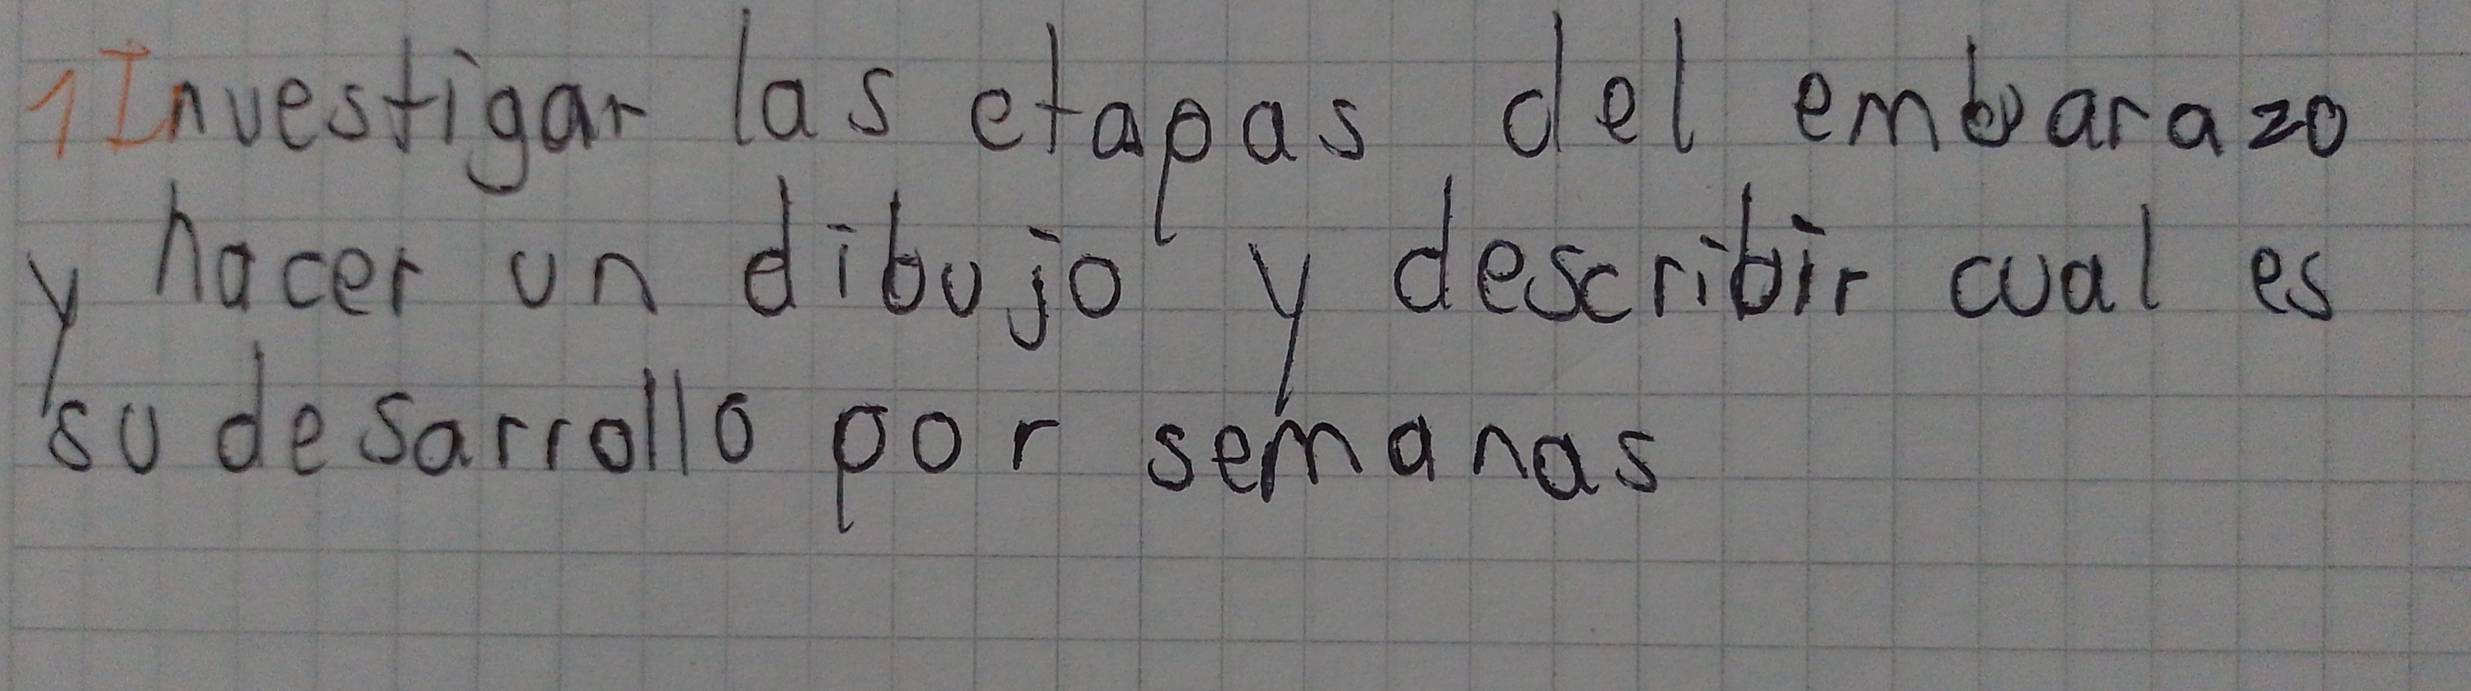 1 Investigar las etapas del embarazo
y hacer un dibujo y describir cual es
su desarrollo por semanas